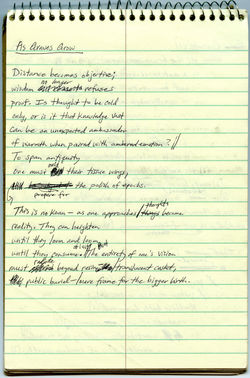 As Graves Grow
Distance becomes objective;
wisdom no longer refuses
proof. Is thought to be cold
only, or is it that knowledge that
can be an unexpected ambassador
of warmth when paired with numbered emotion? //
To span antiquity
one must only their tissue wings,
prepare for the polish of epochs.
This is no Koan — as one approaches / thoughts become
reality. They can heighten
until they loom and
until they consume. The entirety of one's vision
must beyond translucent casket,
public burial — mere frame for the bigger birth.